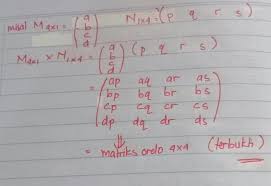 misal M4x1 = (a b c d) N1x4 = (p q r s)
M4x1 x N1x4 = (a b c d) (p q r s)
= (ap aq ar as
bp bq br bs
cp cq cr cs
dp dq dr ds)
⇓
= matriks ordo 4x4 (terbukti)